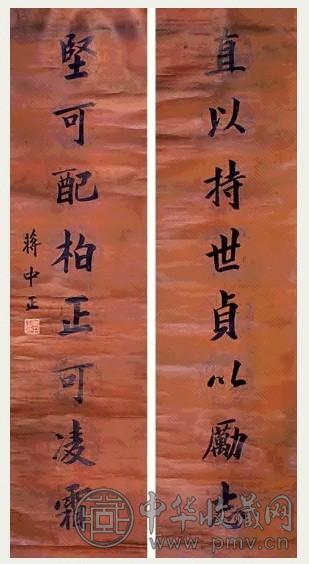 直以持世貞以勵志
堅可配柏正可凌霜
蔣中正
中华收藏网
www.pmv.cn